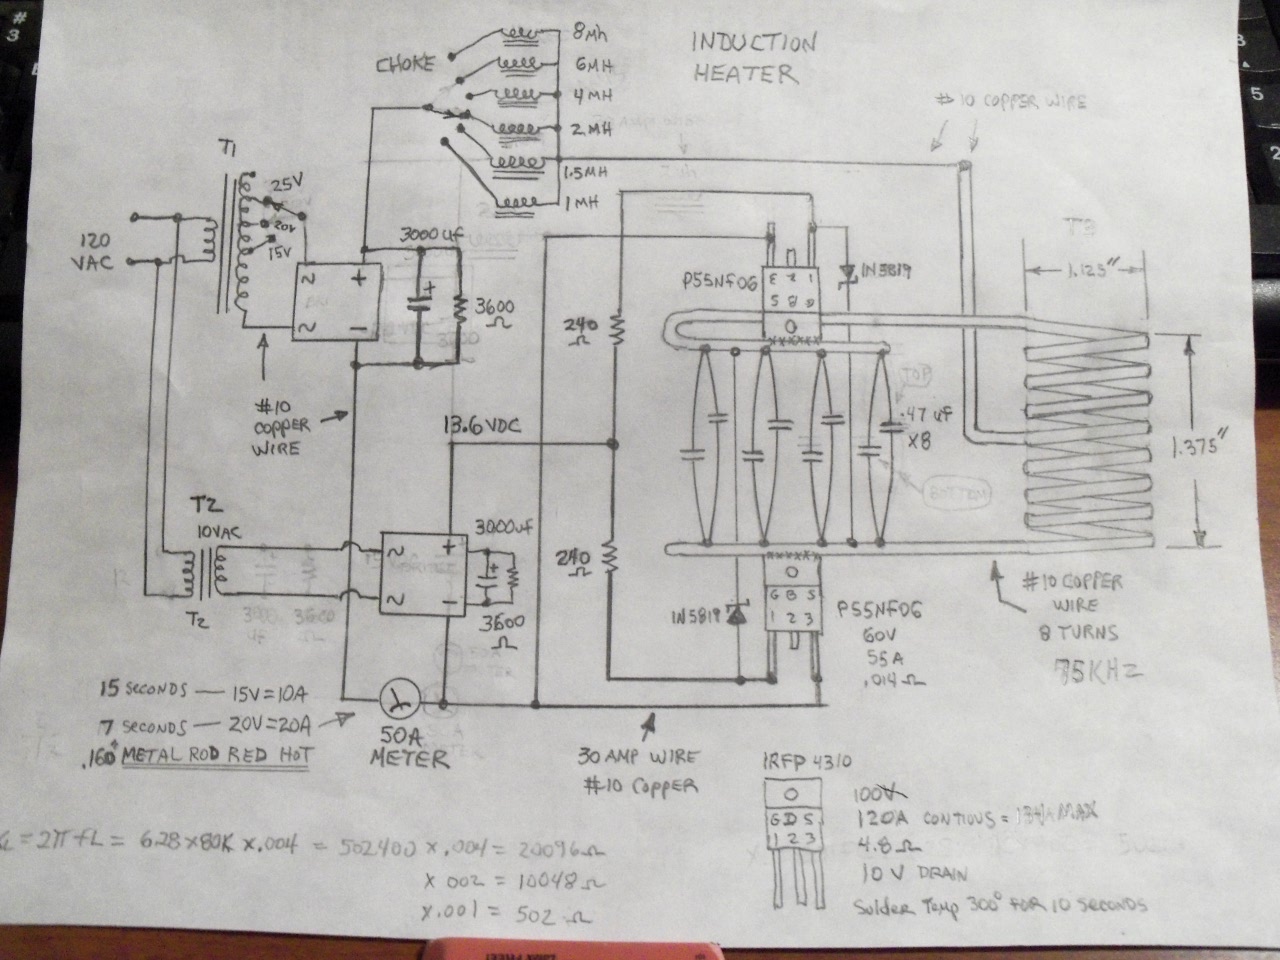 INDUCTION
HEATER
CHOKE
8Mh
6MH
4MH
2MH
1.5MH
1MH
#10 COPPER WIRE
T1
25V
20V
15V
120
VAC
3000uf
+
~
+
~
-
3600
Ω
#10
COPPER
WIRE
13.6VDC
T2
10VAC
T2
3000uf
~
+
~
-
+
3600
Ω
240
Ω
240
Ω
P55NF06
3 2 1
S D G
1N5819
TOP
.47uf
X8
BOTTOM
T3
1.125"
1.375"
1N5819
G D S
1 2 3
P55NF06
60V
55A
.014Ω
#10 COPPER
WIRE
8 TURNS
75KHZ
15 SECONDS — 15V=10A
7 SECONDS — 20V=20A
.160" METAL ROD RED HOT
50A
METER
30 AMP WIRE
#10 COPPER
IRFP4310
G D S
1 2 3
100V
120A CONTIOUS = MAX
4.8Ω
10V DRAIN
Solder Temp 300° FOR 10 SECONDS
= 2π f L = 6.28 x 80K x .004 = 502400 x .004 = 20096Ω
x 002 = 10048Ω
x .001 = 502Ω